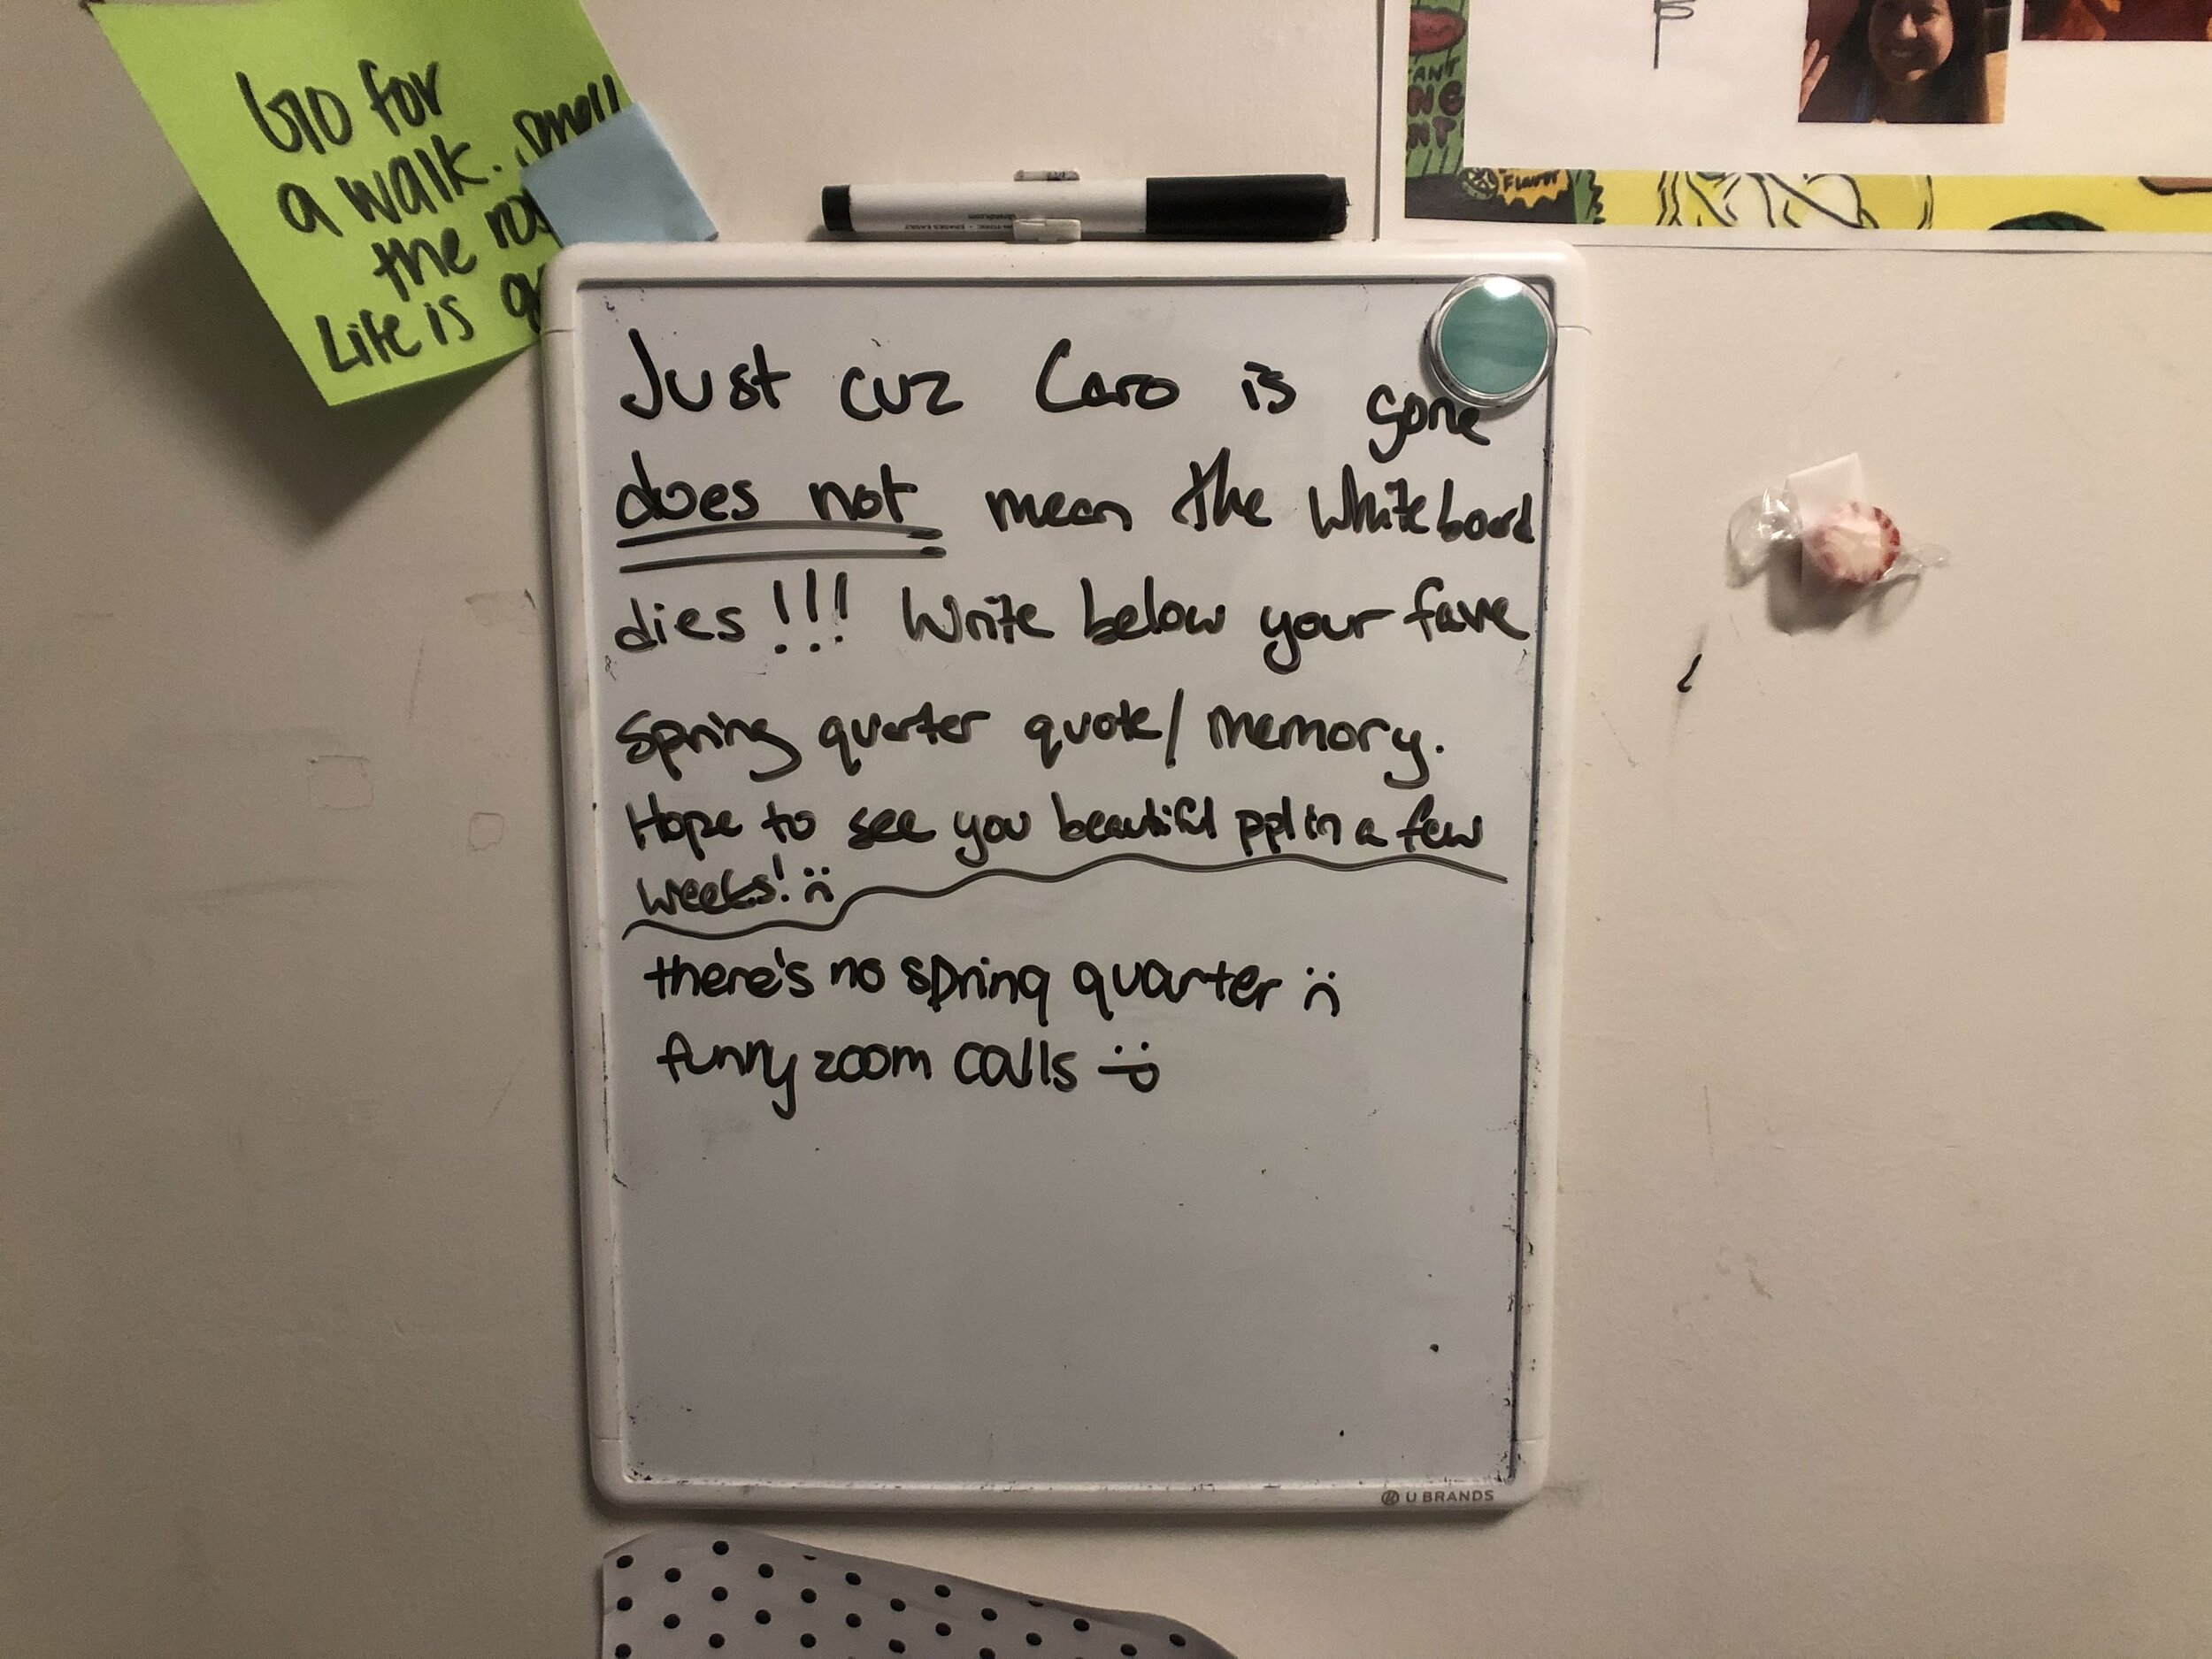 Go for
a walk. smell
the
Life is
Just cuz Caro is gone
does not mean the whiteboard
dies!!! Write below your fave
spring quarter quote/memory.
Hope to see you beautiful ppl in a few
weeks! :(
there's no spring quarter :(
funny zoom calls :P
U BRANDS
Flavor